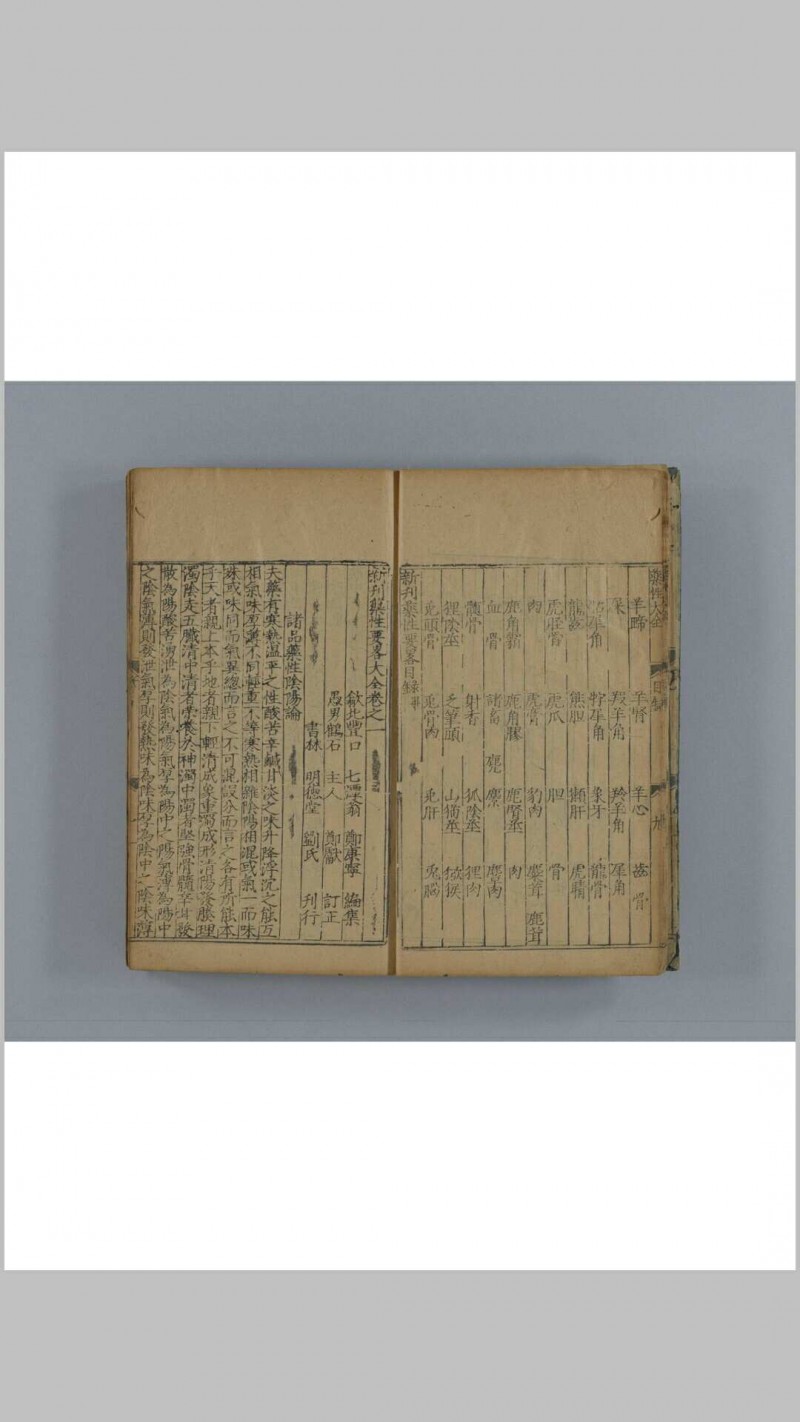 藥性大全 目錄
羊蹄 羊腎 羊心 齒 骨
屎 羖羊角 羚羊角 犀角
牯犀角 象牙 龍骨
龍齒 熊胆 獺肝 虎睛
虎脛骨 虎爪 胆 骨
肉 虎膏 豹肉 麋茸 鹿茸
鹿角霜 鹿角膠 鹿腎莖 肉
血 骨 諸畜 麂 麇 麞肉
髓骨 射香 狐陰莖 狸肉
狸陰莖 乏筆頭 山猫莖 猿猴
兎頭骨 兎骨肉 兎肝 兎腦
新刊藥性要畧目録畢
新刊藥性要畧大全卷之一
歙北豐口 七潭翁 鄭康寧 編集
愚男鶴石 主人 鄭 訂正
書林 明德堂 劉氏 刊行
諸品藥性陰陽論
夫藥有寒熱温平之性酸苦辛鹹甘淡之味升降浮沉之能互
相氣味厚薄不同輕重不等寒熱相雜陰陽相混或氣一而味
殊或味同而氣異總而言之不可混說分而言之各有所能本
乎天者親上本乎地者親下輕清成象重濁成形清陽發腠理
濁陰走五臓清中清者榮養於神濁中濁者堅強骨髓辛甘發
散為陽酸苦湧泄為陰氣為陽氣厚為陽中之陽氣薄為陽中
之陰氣薄則發泄氣厚則發熱味為陰味厚為陰中之陰味薄